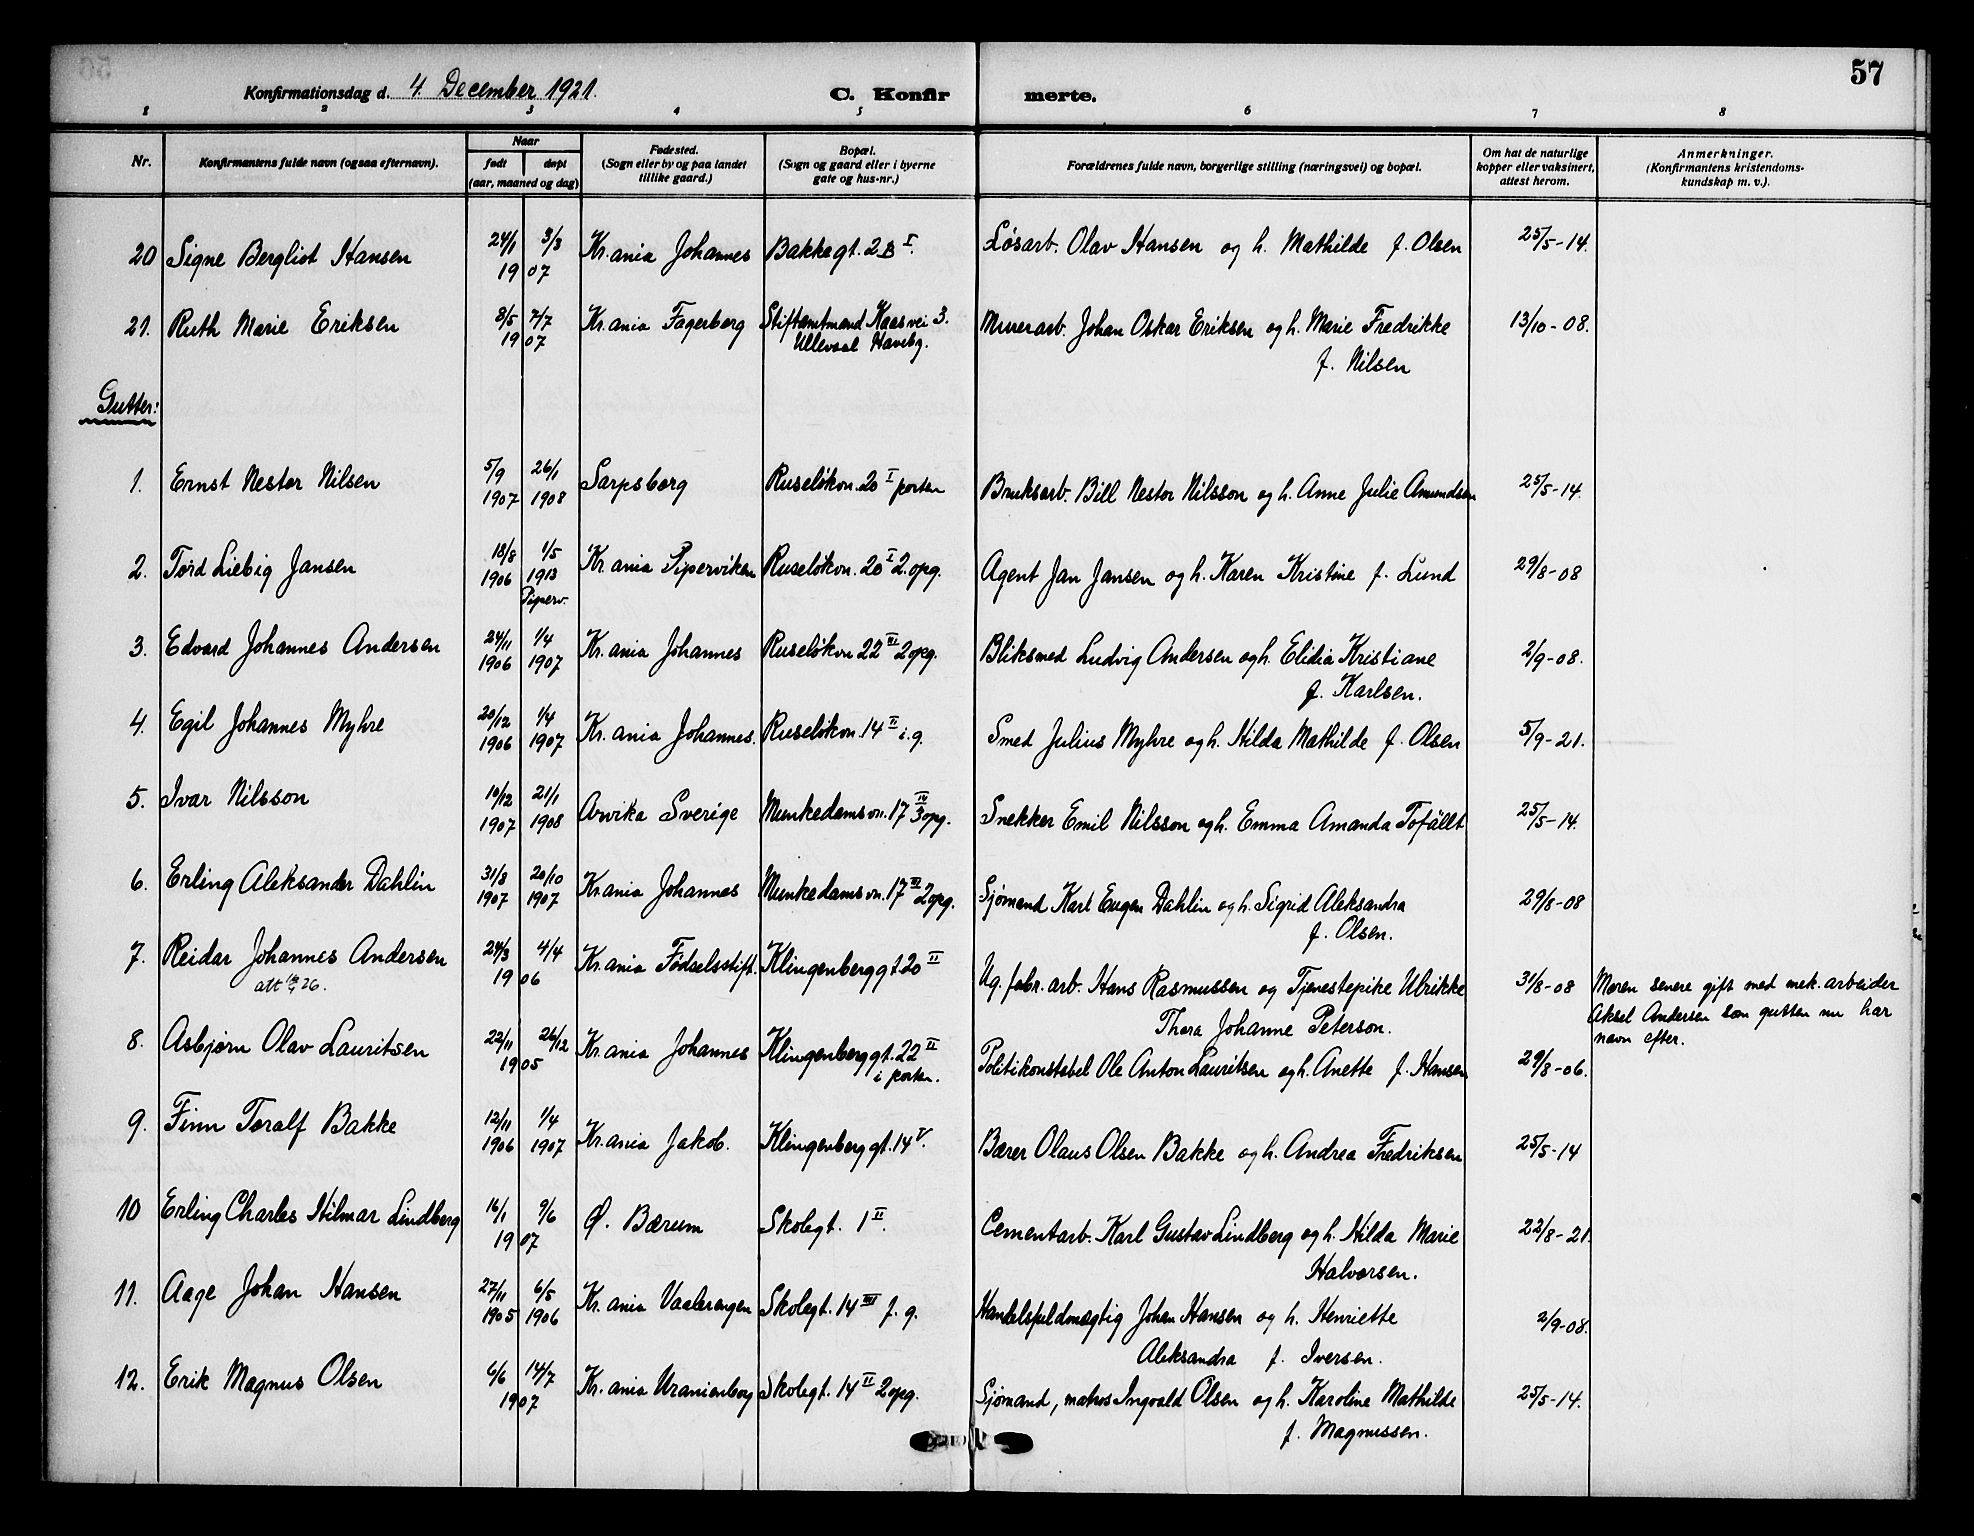 57
Konfirmationsdag d. 4. December 1921.
C. Konfir merte.
1 2 3 4 5 6 7 8
Nr.
Konfirmantens fulde navn (ogsaa efternavn).
Naar
født døpt
(aar, maaned og dag)
Fødested.
(Sogn eller by og paa landet
tillike gaard.)
Bopæl.
(Sogn og gaard eller i byerne
gate og hus-nr.)
Forældrenes fulde navn, borgerlige stilling (næringsvei) og bopæl.
Om hat de naturlige
kopper eller vaksinert,
attest herom.
Anmerkninger.
(Konfirmantens kristendoms-
kundskap m. v.).
20 Signe Bergliot Hansen 24/1 3/3 Kr.ania Johannes Bakkegt. 2B I. Løsarb. Olav Hansen og h. Mathilde f. Olsen 25/5-14.
19 07
21. Ruth Marie Eriksen 8/5 7/7 Kr.ania Fagerborg Stiftamtmand Kaasvei 3. Murerarb. Johan Oskar Eriksen og h. Marie Fredrikke 13/10-08.
19 07 Ullevaal Haveby. f. Nilsen
Gutter:
1. Ernst Nestor Nilsen 5/9 26/1 Sarpsborg Ruseløkvn. 20 I porten Bruksarb. Bill Nestor Nilsson og h. Anne Julie Amundsen 25/5-14.
1907 1908
2. Tord Liebig Jansen 18/8 1/5 Kr.ania Piperviken Ruseløkvn. 20 I 2.opg. Agent Jan Jansen og h. Karen Kristine f. Lund 29/8-08
1906 1913
Piperv.
3. Edvard Johannes Andersen 24/11 1/4 Kr.ania Johannes Ruseløkvn 22 III 2opg. Bliksmed Ludvig Andersen og h. Elidia Kristiane 2/9-08.
1906 1907 f. Karlsen.
4. Egil Johannes Myhre 20/12 1/4 Kr.ania Johannes. Ruseløkvn. 14 II i.g. Smed Julius Myhre og h. Hilda Mathilde f. Olsen 5/9-21.
1906 1907
5. Ivar Nilsson 10/12 21/1 Arvika Sverige Munkedamsvn. 17 IV 3opg. Snekker Emil Nilsson og h. Emma Amanda Tofällt 25/5-14.
1907 1908
6. Erling Aleksander Dahlin 31/8 20/10 Kr.ania Johannes Munkedamsvn. 17 III 2opg. Sjømand Karl Eugen Dahlin og h. Sigrid Aleksandra 29/8-08
1907 1907 f. Olsen.
7. Reidar Johannes Andersen 24/3 4/4 Kr.ania Fødselsstift. Klingenberggt 20 II Ug. fabr. arb. Hans Rasmussen og Tjenestepike Ulrikke 31/8-08 Moren senere gift med mek. arbeider
att 26. 19 06 Thora Johanne Peterson. Aksel Andersen som gutten nu har
navn efter.
8. Asbjørn Olav Lauritsen 22/11 26/12 Kr.ania Johannes Klingenberggt. 22 II Politikonstabel Ole Anton Lauritsen og h. Anette f. Hansen 29/8-06.
19 05 i porten.
9. Finn Toralf Bakke 12/11 1/4 Kr.ania Jakob. Klingenberggt. 14 V. Bærer Olaus Olsen Bakke og h. Andrea Fredriksen 25/5-14
1906 1907
10 Erling Charles Hilmar Lindberg 16/1 9/6 Ø. Bærum Skolegt. 1 II. Cementarb. Karl Gustav Lindberg og h. Hilda Marie 22/8-21.
19 07 Halvorsen.
11. Aage Johan Hansen 27/11 6/5 Kr.ania Vaalerengen Skolegt. 14 III f. g. Handelsfuldmægtig Johan Hansen og h. Henriette 2/9-08.
1905 1906 Aleksandra f. Iversen.
12. Erik Magnus Olsen 6/6 14/7 Kr.ania Uranienborg Skolegt. 14 II 2opg. Sjømand, matros Ingvald Olsen og h. Karoline Mathilde 25/5-14.
19 07 f. Magnussen.